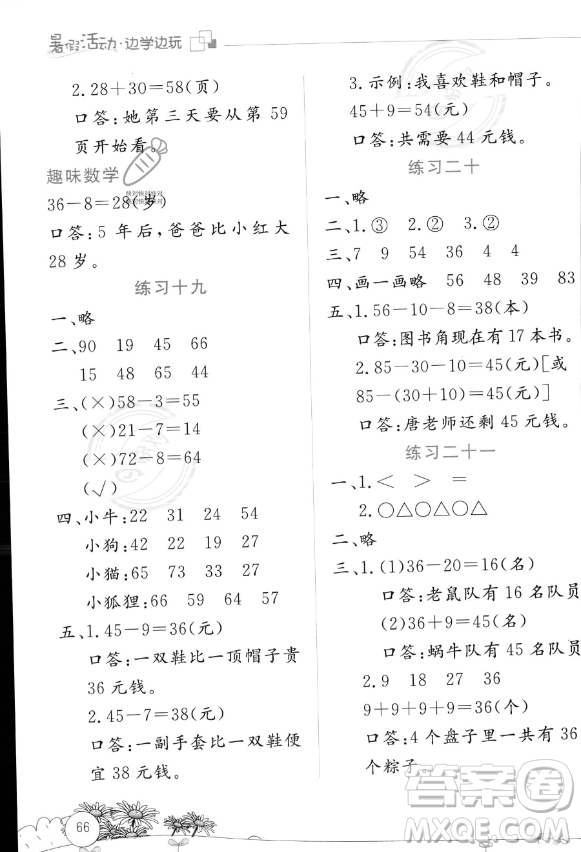 暑假活动·边学边玩
2.28+30=58(页)
口答:她第三天要从第 59
页开始看。
趣味数学
36-8=28(岁)
口答:5 年后,爸爸比小红大
28 岁。
练习十九
一、略
二、90 19 45 66
15 48 65 44
三、(×)58-3=55
(×)21-7=14
(×)72-8=64
(√)
四、小牛:22 31 24 54
小狗:44 35 55 39
小猫:66 54 35 57
小狐狸:66 57 64
五、1.45-9=36(元)
口答:一双鞋比一顶帽子贵
36 元钱。
2.45-7=38(元)
口答:一副手套比一双鞋便
宜 38 元钱。
66
3.示例:我喜欢鞋和帽子。
45+9=54(元)
口答:共需要 44 元钱。
练习二十
一、略
二、1.③ 2.② 3.②
三、7 9 54 36 4 4
四、画一画略 56 48 39 83
五、1.56-10-8=38(本)
口答:图书角现在有 17 本书。
2.85-30-10=45(元)[或
85-(30+10)=45(元)]
口答:唐老师还剩 45 元钱。
练习二十一
一、1.< > = >
2.○△○△○△△
二、略
三、1.(1)36-20=16(名)
口答:老鼠队有 16 名队员
(2)36+9=45(名)
口答:蜗牛队有 45 名队员
2.9 18 27 36
9+9+9+9=36(个)
口答:4 个盘子里一共有
个粽子。
答案圈
MXQE.COM